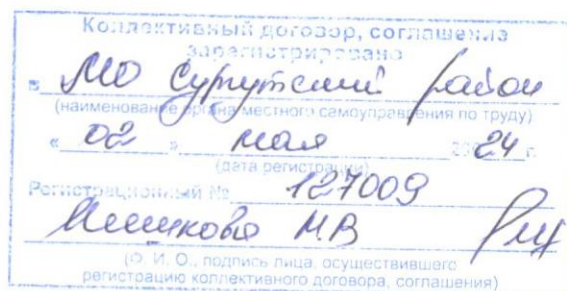 Коллективный договор, соглашение
зарегистрировано
в МО Сургутский район
(наименование органа местного самоуправления по труду)
« 02 » мая 2024 г.
(дата регистрации)
Регистрационный № 127009
НВ
(Ф. И. О., подпись лица, осуществившего
регистрацию коллективного договора, соглашения)